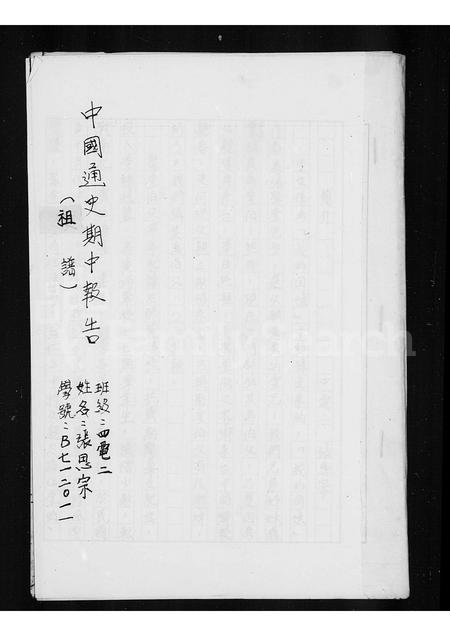 中國通史期中報告
（祖譜）
班級：四電二
姓名：張思宗
學號：B七一二〇一一
FamilySearch